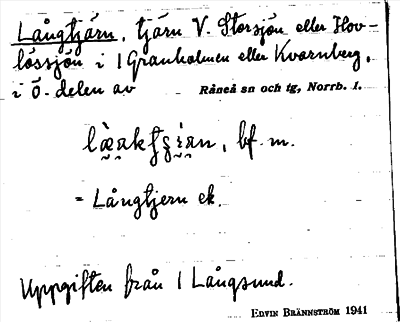 Långtjärn, tjärn V. Storsjön eller Hov-
lössjön i 1 Granholmen eller Kvarnberg,
i Ö. delen av Råneå sn och tg, Norrb. l.
bf. m.
= Långtjern ek.
Uppgiften från 1 Långsund.
EDVIN BRÄNNSTRÖM 1941